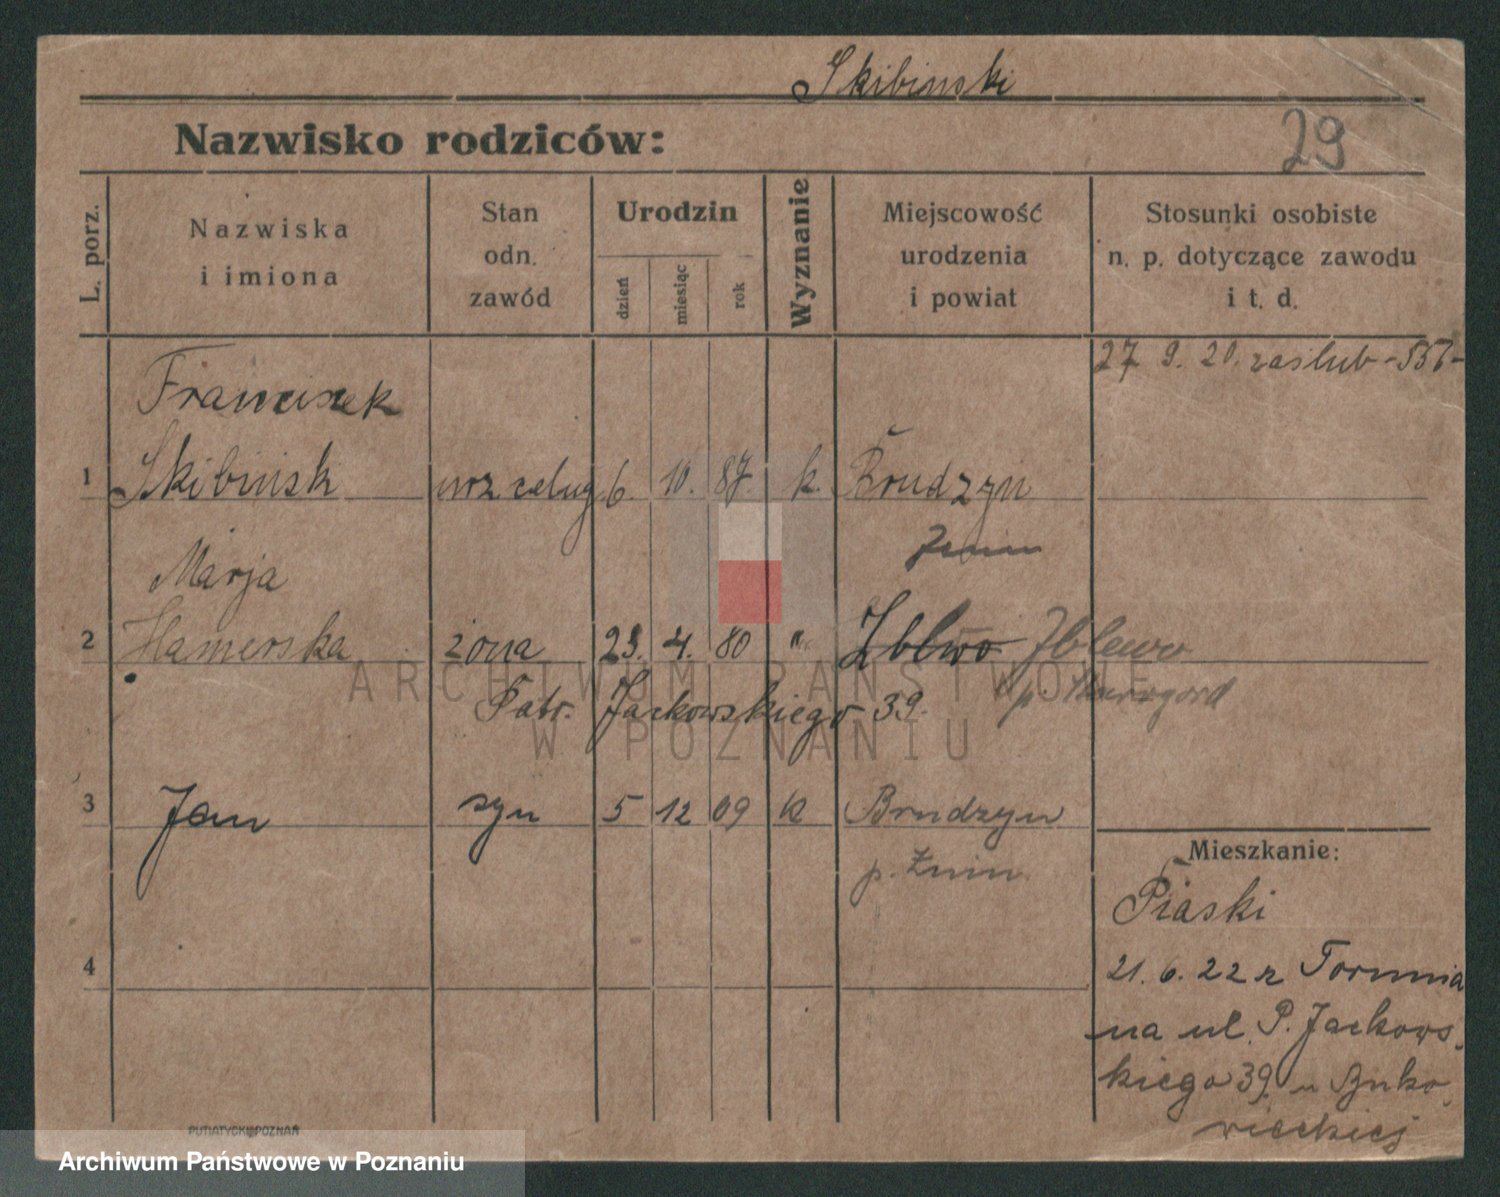 Skibinski
Nazwisko rodziców:
29
L. porz.
Nazwiska
i imiona
Stan
odn.
zawód
Urodzin
dzień
miesiąc
rok
Wyznanie
Miejscowość
urodzenia
i powiat
Stosunki osobiste
n. p. dotyczące zawodu
i t. d.
27 9. 20. zaślub
Franciszek
1 Skibinski urz celny 6. 10. 87. k. Brudzyń
Żnin
Marja
2 Hamerska żona 23. 4. 80 " Zblewo Zblewo
p. Starogard
Patr. Jackowskiego 39.
3 Jan syn 5 12 09 k Brudzyn
p. Żnin
4
Mieszkanie:
Piaski
21. 6. 22 z Torunia
na ul. P. Jackows-
kiego 39. u
PUTIATYCKI POZNAŃ
ARCHIWUM PAŃSTWOWE
W POZNANIU
Archiwum Państwowe w Poznaniu